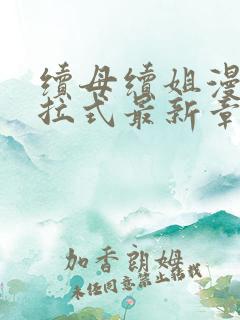 續母續姐漫
拉式最新章
加香朗姆
未经同意禁止转载